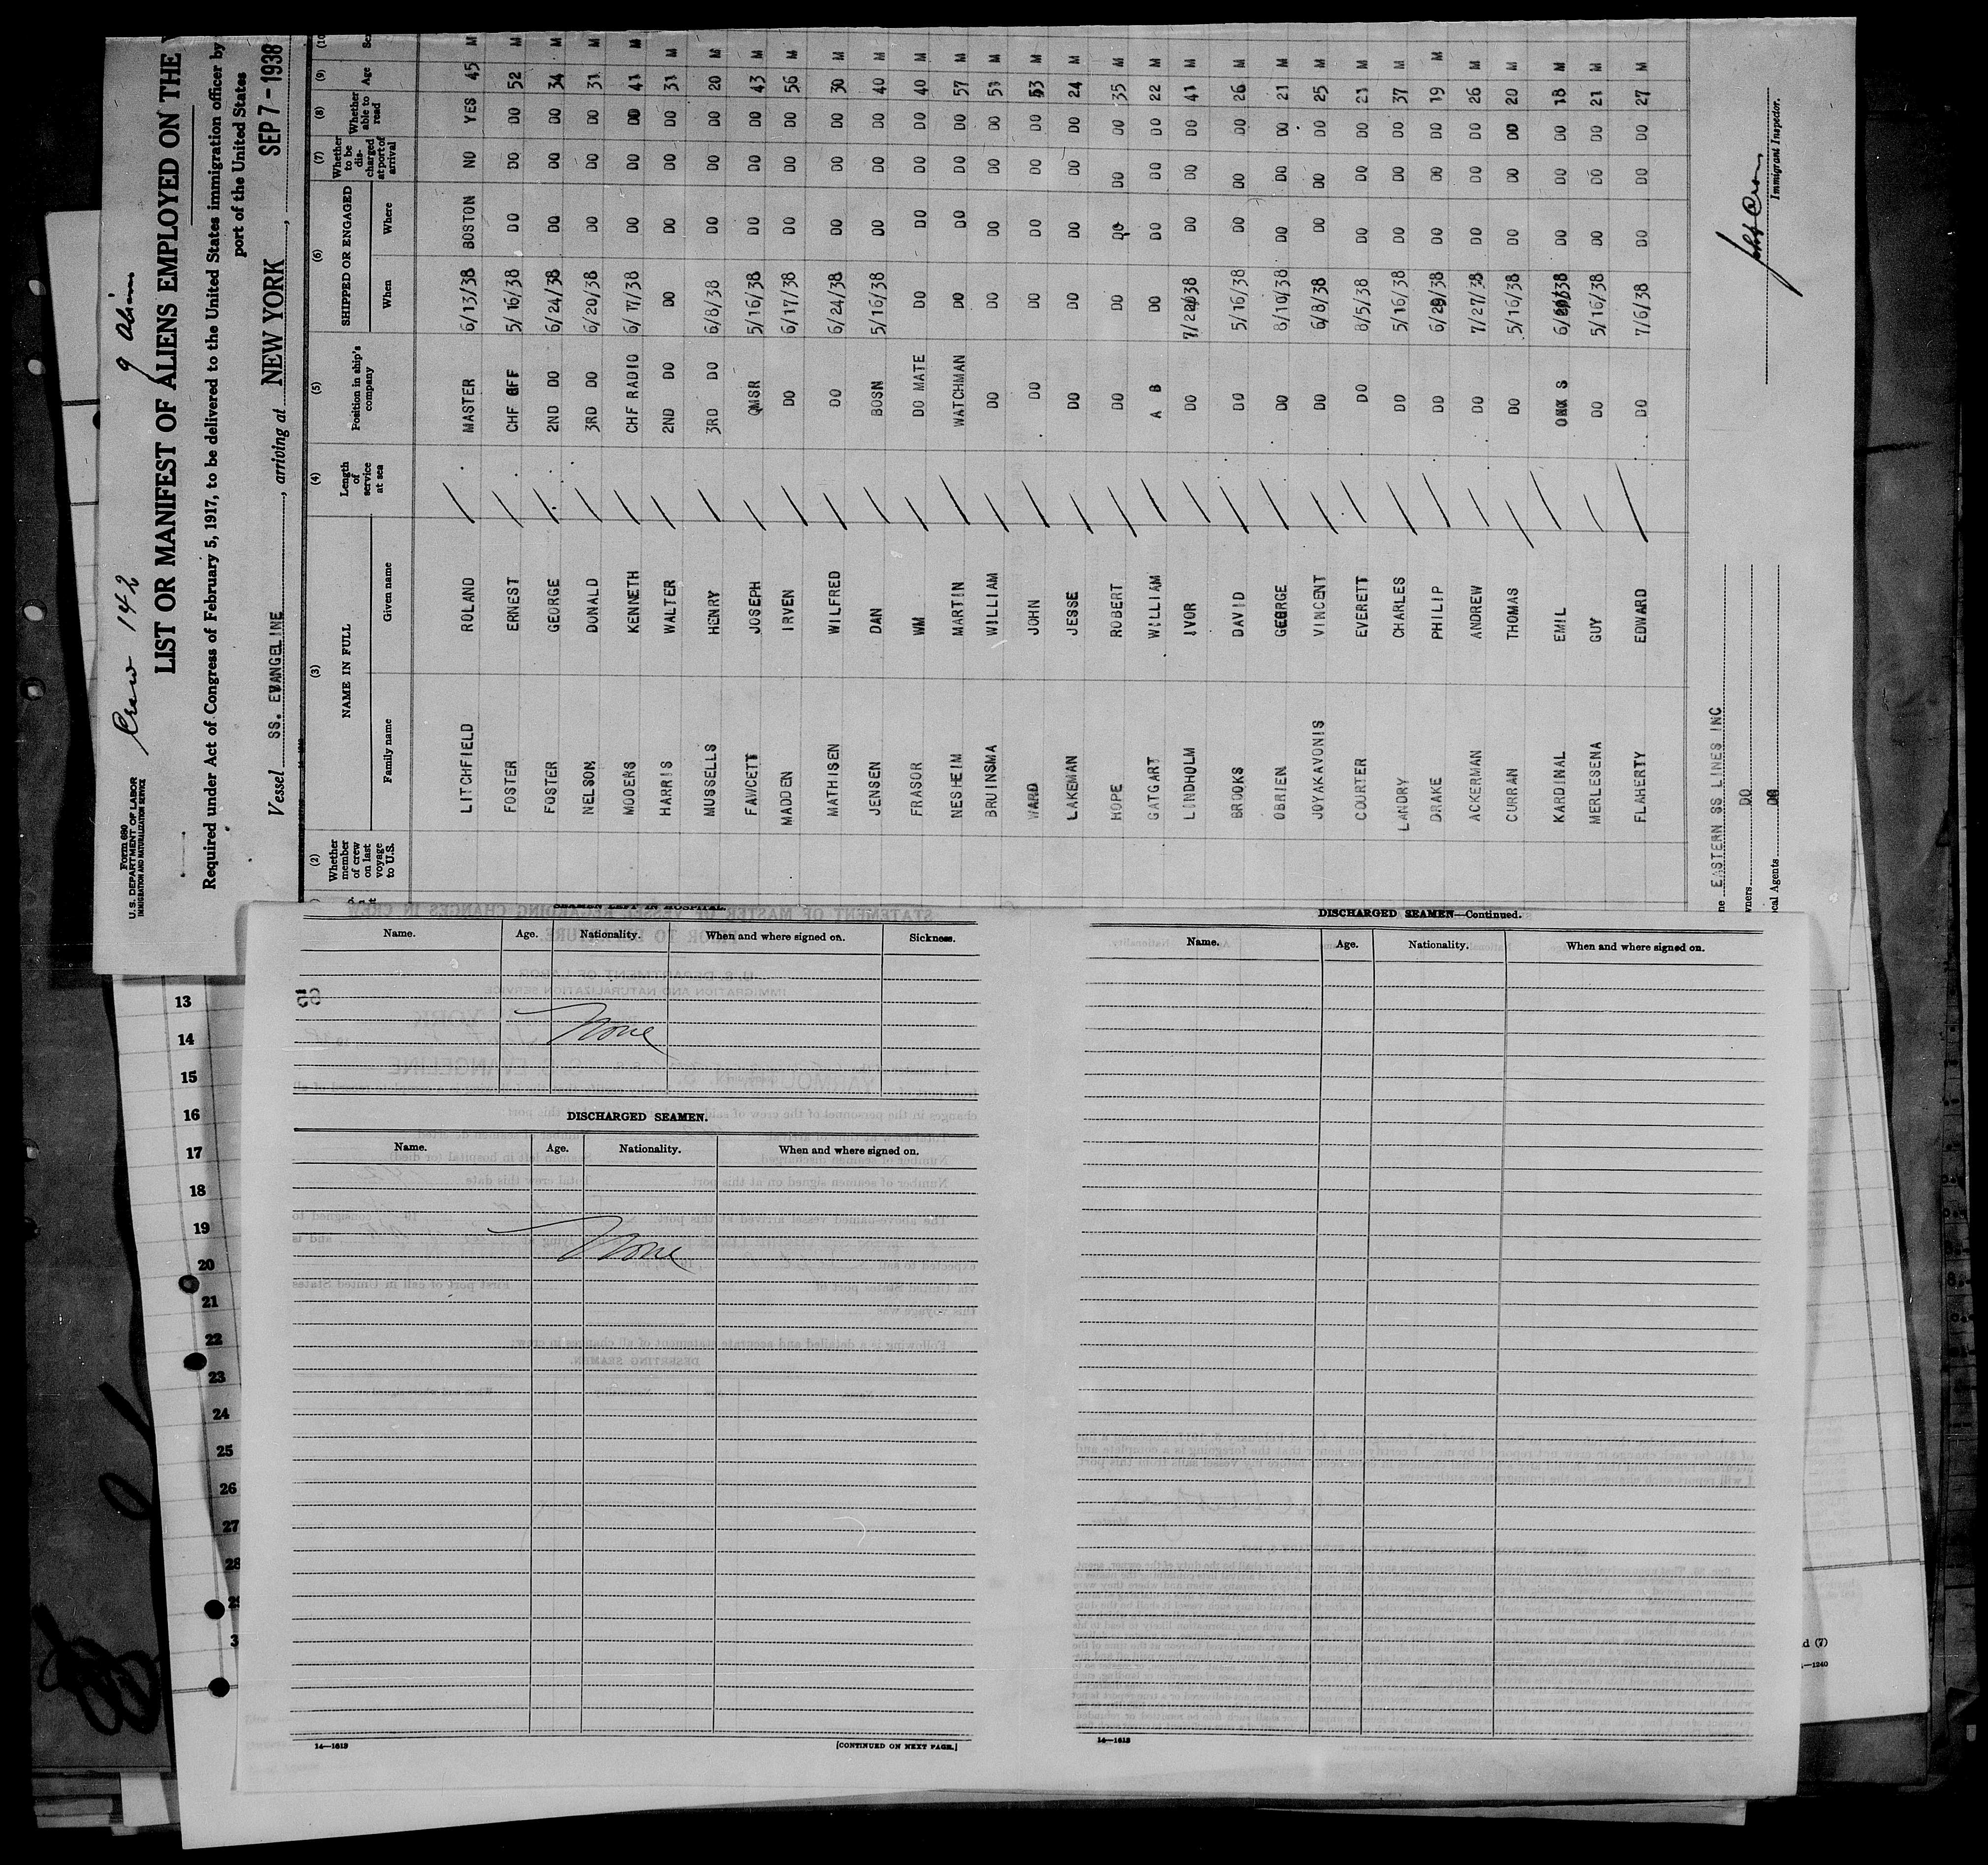 Form 680
U. S. DEPARTMENT OF LABOR
IMMIGRATION AND NATURALIZATION SERVICE
Crew 142
9 Aliens
LIST OR MANIFEST OF ALIENS EMPLOYED ON THE
Required under Act of Congress of February 5, 1917, to be delivered to the United States immigration officer by
port of the United States
Vessel SS. EVANGELINE, arriving at NEW YORK, SEP 7 - 1938
(2) (3) (4) (5) (6) (7) (8) (9) (10
Whether member of crew on last voyage to U.S.
NAME IN FULL
Family name Given name
Length of service at sea
Position in ship's company
SHIPPED OR ENGAGED
When Where
Whether to be discharged at port of arrival
Whether able to read
Age
LITCHFIELD ROLAND MASTER 6/13/38 BOSTON NO YES 45 M
FOSTER ERNEST CHF OFF 5/16/38 DO DO DO 52 M
FOSTER GEORGE 2ND DO 6/24/38 DO DO DO 34 M
NELSON DONALD 3RD DO 6/20/38 DO DO DO 31 M
MOOERS KENNETH CHF RADIO 6/17/38 DO DO DO 41 M
HARRIS WALTER 2ND DO DO DO DO DO 31 M
MUSSELLS HENRY 3RD DO 6/8/38 DO DO DO 20 M
FAWCETT JOSEPH QMSR 5/16/38 DO DO DO 43 M
MADDEN IRVEN DO 6/17/38 DO DO DO 56 M
MATHISEN WILFRED DO 6/24/38 DO DO DO 30 M
JENSEN DAN BOSN 5/16/38 DO DO DO 40 M
FRASOR WM DO MATE DO DO DO DO 40 M
NESHEIM MARTIN WATCHMAN DO DO DO DO 57 M
BRUINSMA WILLIAM DO DO DO DO DO 51 M
WARD JOHN DO DO DO DO DO 53 M
LAKEMAN JESSE DO DO DO DO DO 24 M
HOPE ROBERT DO DO DO DO DO 35 M
GATGART WILLIAM A B DO DO DO DO 22 M
LINDHOLM IVOR DO DO DO DO 41 M
BROOKS DAVID DO 5/16/38 DO DO DO 26 M
OBRIEN GEORGE DO 8/10/38 DO DO DO 21 M
JOYAKAVONIS VINCENT DO 6/8/38 DO DO DO 25 M
COURTER EVERETT DO 8/5/38 DO DO DO 21 M
LANDRY CHARLES DO 5/16/38 DO DO DO 37 M
DRAKE PHILIP DO DO DO DO 19 M
ACKERMAN ANDREW DO 7/27/38 DO DO DO 26 M
CURRAN THOMAS DO 5/16/38 DO DO DO 20 M
KARDINAL EMIL S DO DO DO 18 M
MERLESENA GUY DO 5/16/38 DO DO DO 21 M
FLAHERTY EDWARD DO 7/6/38 DO DO DO 27 M
ne EASTERN SS LINES INC
wners DO
ocal Agents DO
Immigrant Inspector.
SEAMEN LEFT IN HOSPITAL.
Name. Age. Nationality. When and where signed on. Sickness.
None
DISCHARGED SEAMEN.
Name. Age. Nationality. When and where signed on.
None
14—1613
[CONTINUED ON NEXT PAGE.]
DISCHARGED SEAMEN—Continued.
Name. Age. Nationality. When and where signed on.
14—1613
13
14
15
16
17
18
19
20
21
22
23
24
25
26
27
28
d (7)
—1240